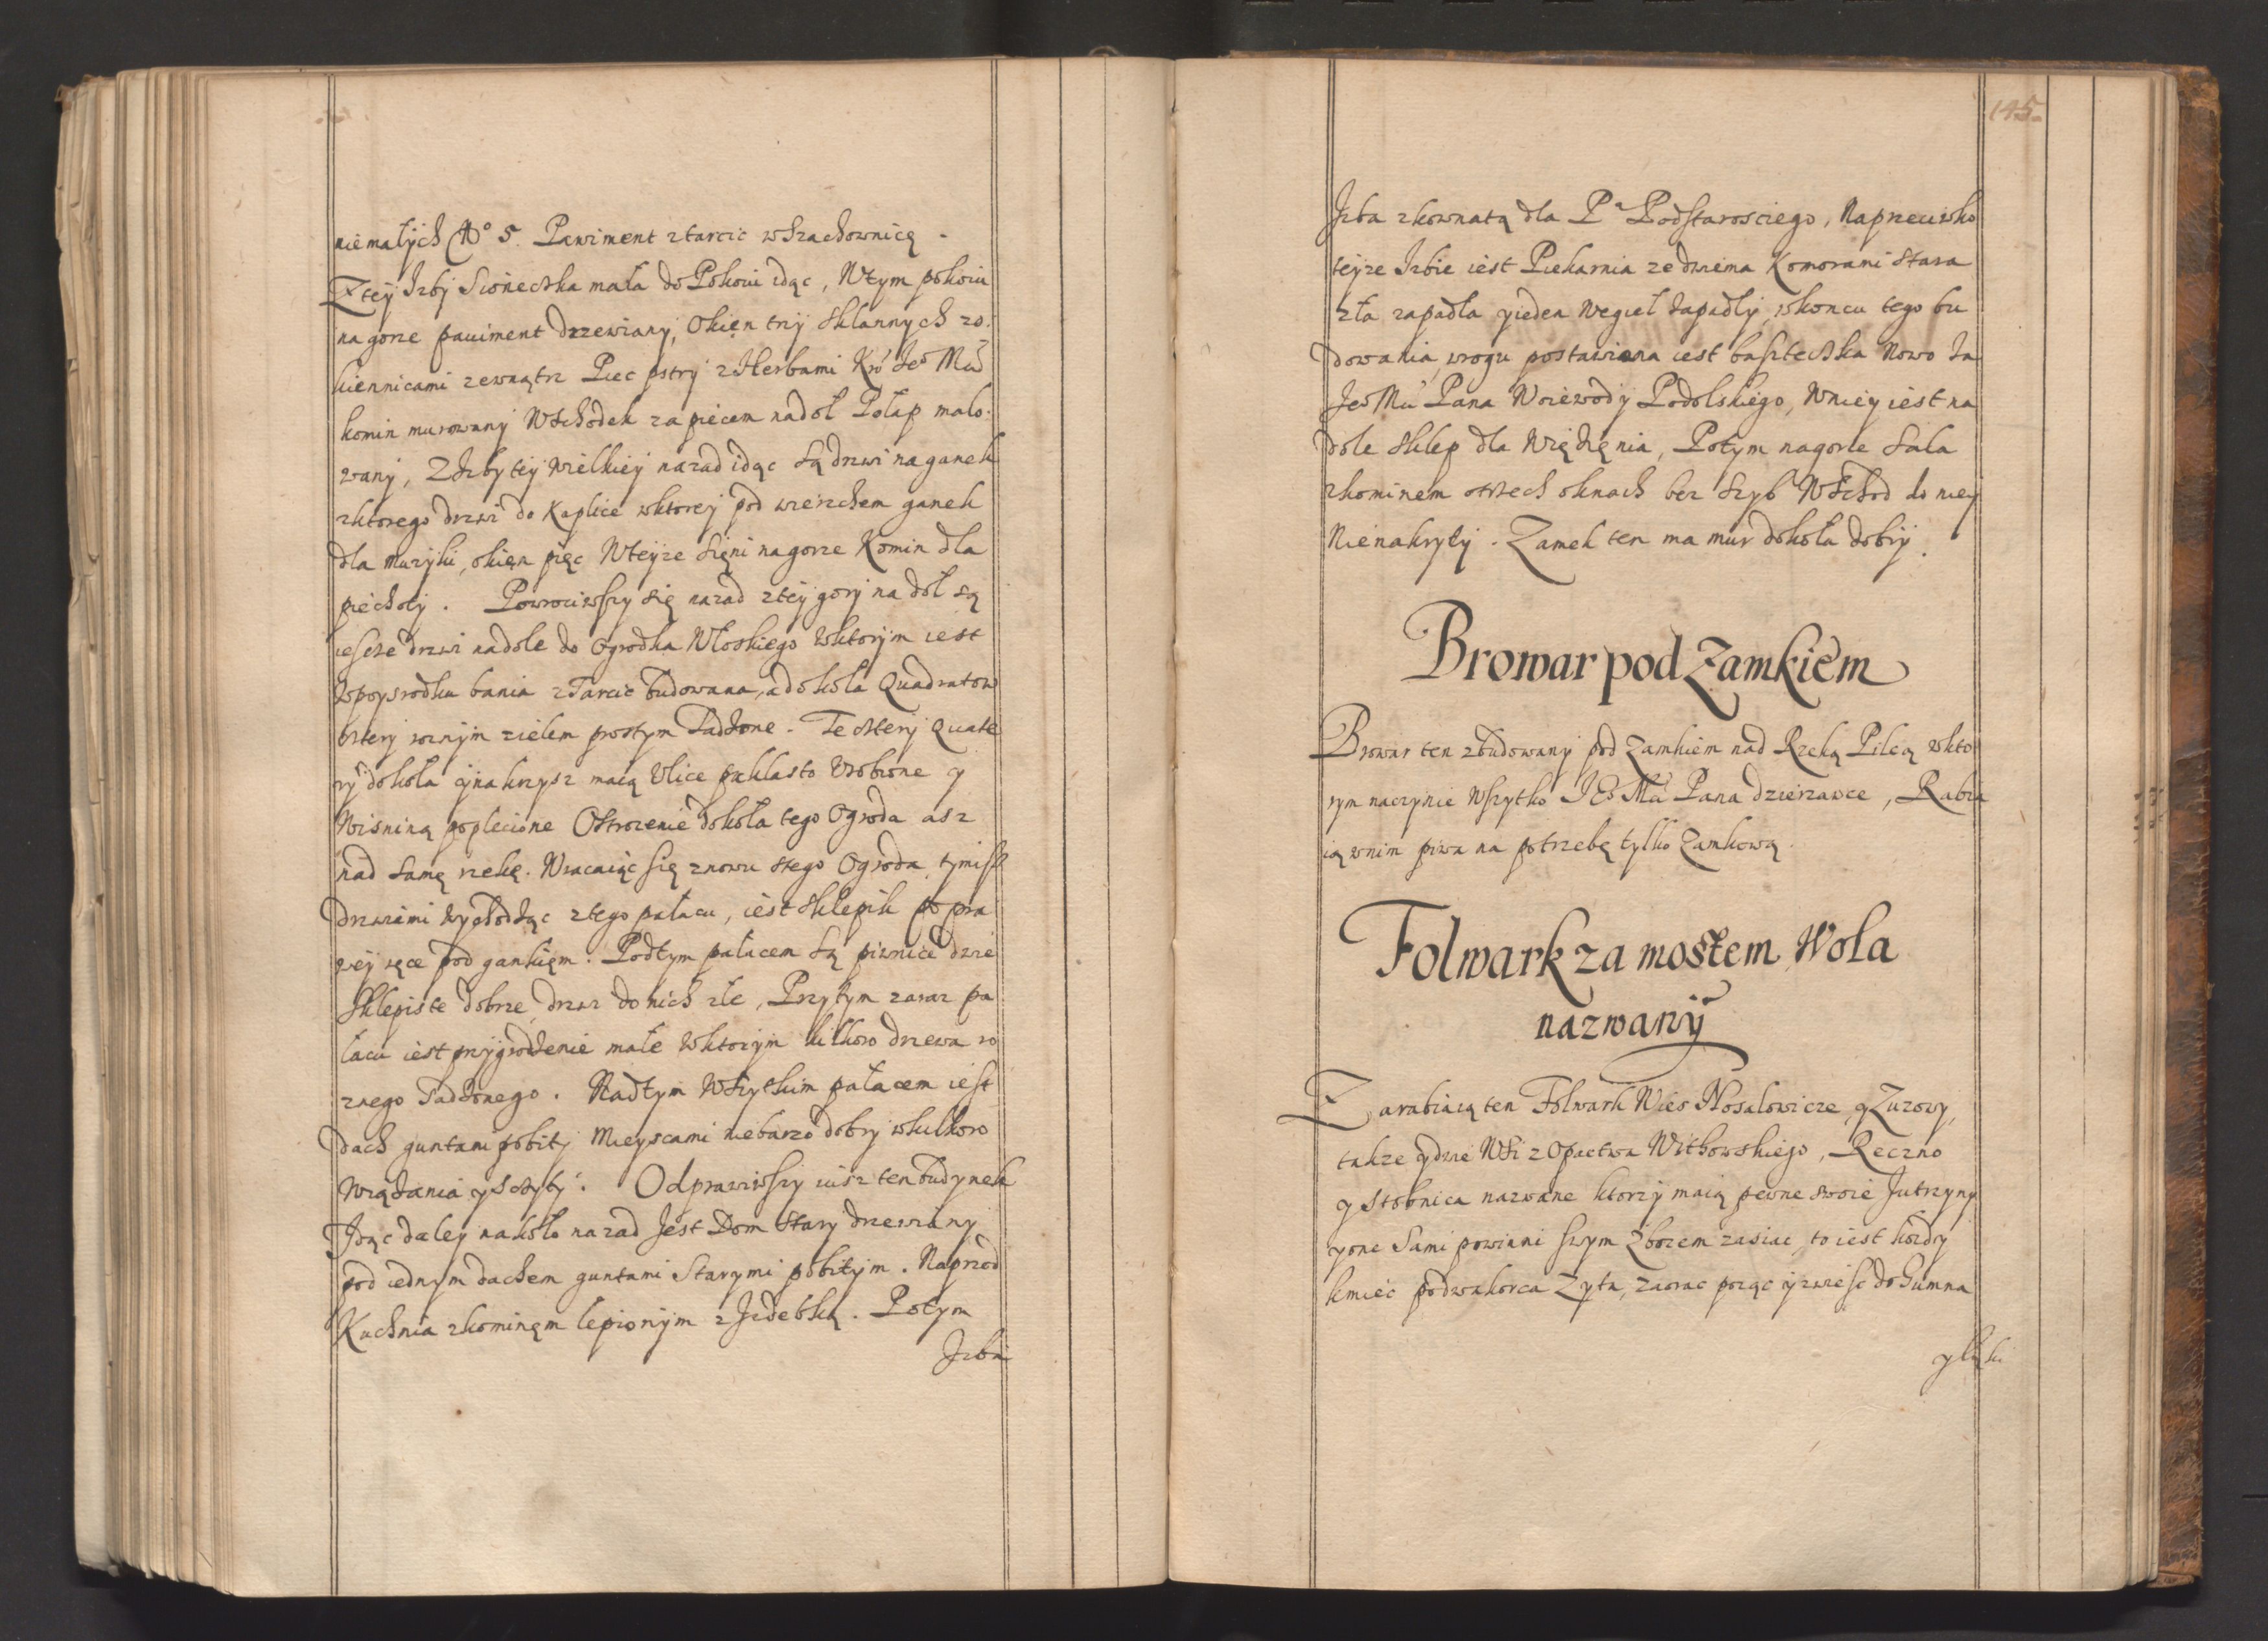 niemałych No 5. Pawiment ztarcic wszachownicę.
Ztey Izby Sioneczka mała do Pokoiu idąc, Wtym pokoiu
nagorze pauiment drzewiany, Okien trzy sklannych zo-
kiennicami zewnątrz Piec pstry zHerbami Kró Jeo Mći
komin murowany Wschodek zapiecem nadoł Połap malo-
wany, ZIzby tey wielkiey nazad idąc są drzwi naganek
zktorego drzwi do Kaplice wktorey pod wierzchem ganek
dla muzyki, okien pięc Wteyze Sięni nagorze Komin dla
piechoty. Powrociwszy się nazad ztey gory na doł są
ieszcze drzwi nadole do Ogrodka Włoskiego wktorym iest
wpoysrodku bania ztarcic budowana, adokoła Quadratow
cztery roznym zielem prostym Sadzone. Te cztery Quate
ry dokoła ynakrzysz maią Ulice Wrobione y
Wisnina poplecione Ostrozenie dokoła tego Ogroda asz
nad samę rzekę. Wracaiąc się znowu stego Ogroda tymisz
drzwiami wychodząc ztego pałacu, iest Sklepik po pra
wey ręce pod gankięm. Podtym pałacem są piwnice dwie
Sklepiste dobrze, drzwi do nich złe, Przytym zaraz pa
łacu iest przygrodzenie małe wktorym kilkoro drzewa ro
znego Sadzonego. Nadtym wszytkim pałacem iest
dach guntami pobity Mieyscami niebarzo dobry wkilkoro
Wiązania yszczyty. Odprawiwszy iusz ten budynek
Idąc daley nakoło nazad Jest Dom Stary drzewiany
pod iednym dachem guntami Starymi pobitym. Naprzod
Kuchnia zkominęm lepionym zIzdebką. Potym
Izba
145.
Izba zkownatą dla Pa Podstarosciego, Naprzeciwko
teyze Izbie iest Piekarnia ze dwiema Komorami stara
zła zapadła yieden Węgieł zapadły, wkoncu tego bu
dowania, wrogu postawiona iest baszteczka Nowo za
Jeo Mći Pana Woiewody Podolskiego, Wniey iest na
dole sklep dla Więzięnia, Potym nagorze Sala
zkominem otrzech oknach bez szyb Wschod do niey
Nienakryty. Zamek ten ma mur dokoła dobry.
Browar pod Zamkiem
Browar ten zbudowany pod Zamkiem nad Rzeką Pilcą wkto
rym naczynie wszytko JEo Mći Pana dzierzawce, Rabia
ią wnim piwa na potrzebę tylko Zamkową.
Folwark za mostem Wola
nazwany
Zarabiaią ten Folwark Wies Nosalowicze, yZuzowy,
także ydwie Wsi zOpactwa Witkowskiego, Ręczno
y Stobnica nazwane ktorzy maią pewne swoie Jutrzyny
yone Sami powinni swym Zbozem zasiac, to iest kozdy
kmiec podwakorca Zyta, zaorac poząc yzwiesc do Gumna
y łąki